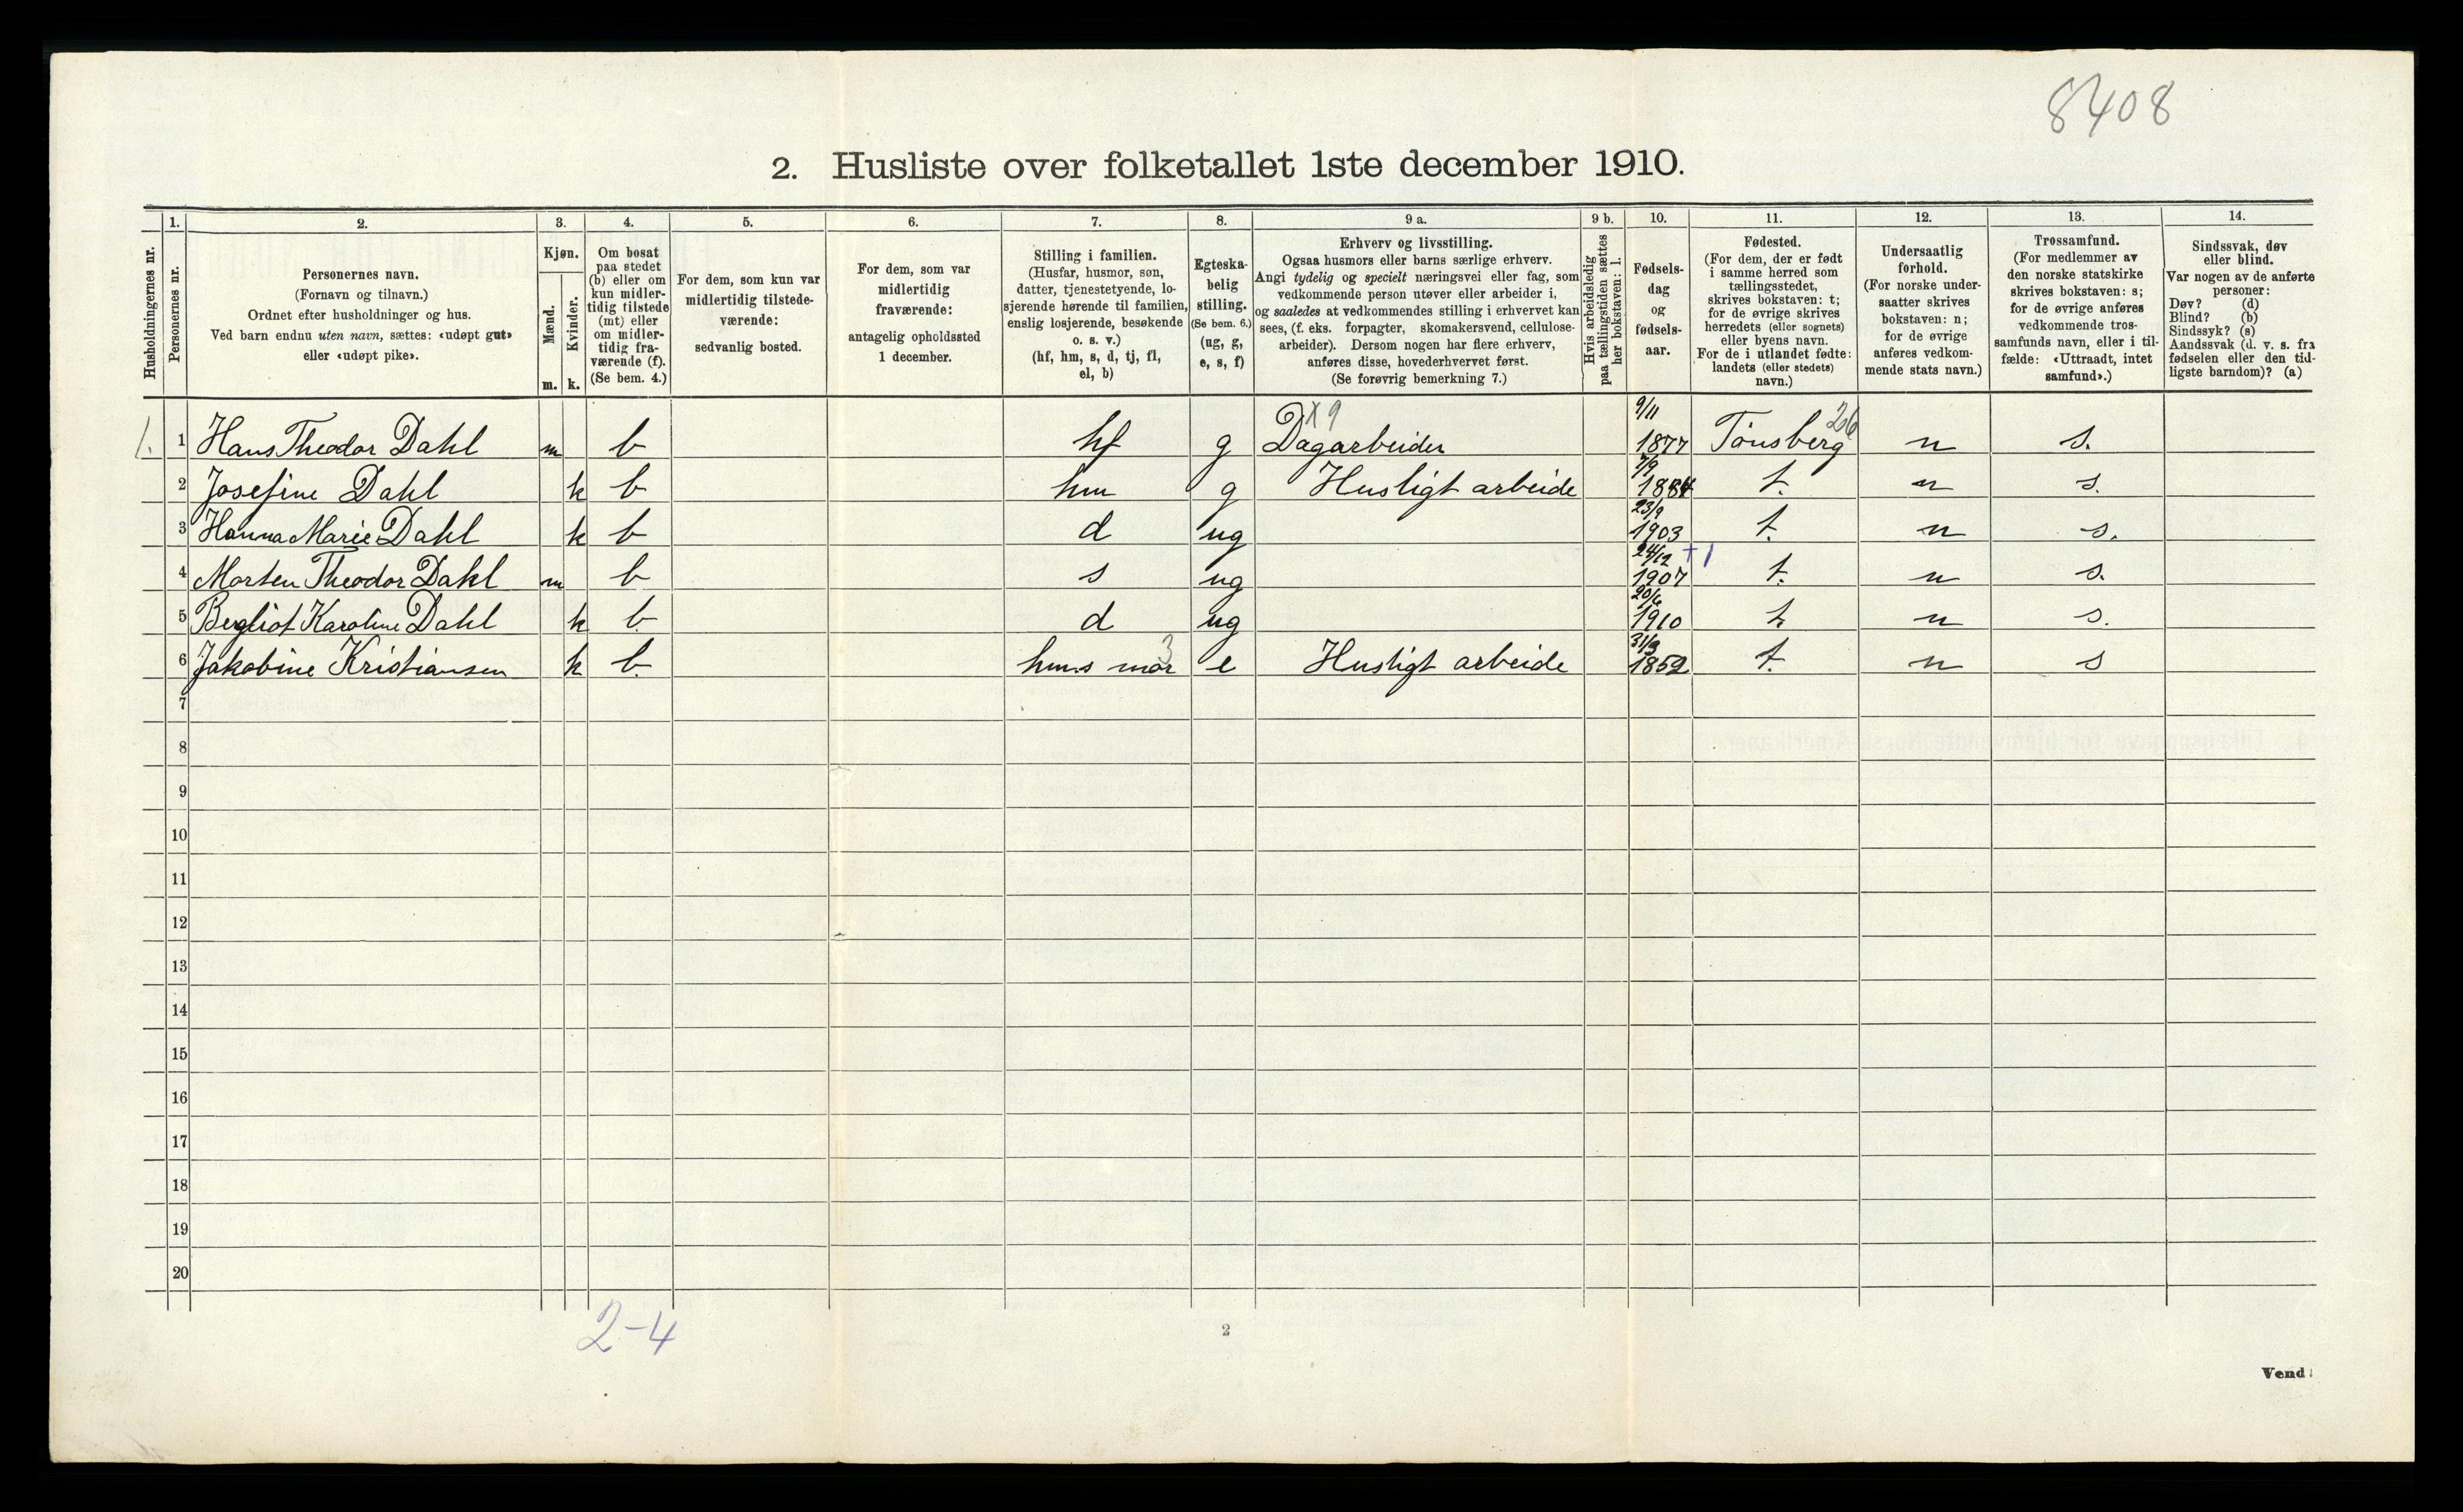 8408
2. Husliste over folketallet 1ste december 1910.
Husholdningernes nr.
1.
Personernes nr.
2.
Personernes navn.
(Fornavn og tilnavn.)
Ordnet efter husholdninger og hus.
Ved barn endnu uten navn, sættes: «udøpt gut»
eller «udøpt pike».
3.
Kjøn.
Mænd.
m.
Kvinder.
k.
4.
Om bosat
paa stedet
(b) eller om
kun midler-
tidig tilstede
(mt) eller
om midler-
tidig fra-
værende (f).
(Se bem. 4.)
5.
For dem, som kun var
midlertidig tilstede-
værende:
sedvanlig bosted.
6.
For dem, som var
midlertidig
fraværende:
antagelig opholdssted
1 december.
7.
Stilling i familien.
(Husfar, husmor, søn,
datter, tjenestetyende, lo-
sjerende hørende til familien,
enslig losjerende, besøkende
o. s. v.)
(hf, hm, s, d, tj, fl,
el, b)
8.
Egteska-
belig
stilling.
(Se bem. 6.)
(ug, g,
e, s, f)
9 a.
Erhverv og livsstilling.
Ogsaa husmors eller barns særlige erhverv.
Angi tydelig og specielt næringsvei eller fag, som
vedkommende person utøver eller arbeider i,
og saaledes at vedkommendes stilling i erhvervet kan
sees, (f. eks. forpagter, skomakersvend, cellulose-
arbeider). Dersom nogen har flere erhverv,
anføres disse, hovederhvervet først.
(Se forøvrig bemerkning 7.)
9 b.
Hvis arbeidsledig
paa tællingstiden sættes
her bokstaven: l.
10.
Fødsels-
dag
og
fødsels-
aar.
11.
Fødested.
(For dem, der er født
i samme herred som
tællingsstedet,
skrives bokstaven: t;
for de øvrige skrives
herredets (eller sognets)
eller byens navn.
For de i utlandet fødte:
landets (eller stedets)
navn.)
12.
Undersaatlig
forhold.
(For norske under-
saatter skrives
bokstaven: n;
for de øvrige
anføres vedkom-
mende stats navn.)
13.
Trossamfund.
(For medlemmer av
den norske statskirke
skrives bokstaven: s;
for de øvrige anføres
vedkommende tros-
samfunds navn, eller i til-
fælde: «Uttraadt, intet
samfund».)
14.
Sindssvak, døv
eller blind.
Var nogen av de anførte
personer:
Døv? (d)
Blind? (b)
Sindssyk? (s)
Aandssvak (d. v. s. fra
fødselen eller den tid-
ligste barndom)? (a)
1. 1 Hans Theodor Dahl m b hf g Dagarbeider X 9 9/11 1877 Tönsberg 26 n s.
2 Josefine Dahl k b hm g Husligt arbeide 7/9 1884 t. n s.
3 Hanna Marie Dahl k b d ug 23/9 1903 t. n s.
4 Morten Theodor Dahl m b s ug 24/12 1907 +1 t. n s.
5 Bergliot Karoline Dahl k b. d ug 20/6 1910 t. n s.
6 Jakobine Kristiansen k b. hm.s mor 3 e Husligt arbeide 31/3 1852 t. n s
7
8
9
10
11
12
13
14
15
16
17
18
19
20
2-4
2
Vend!